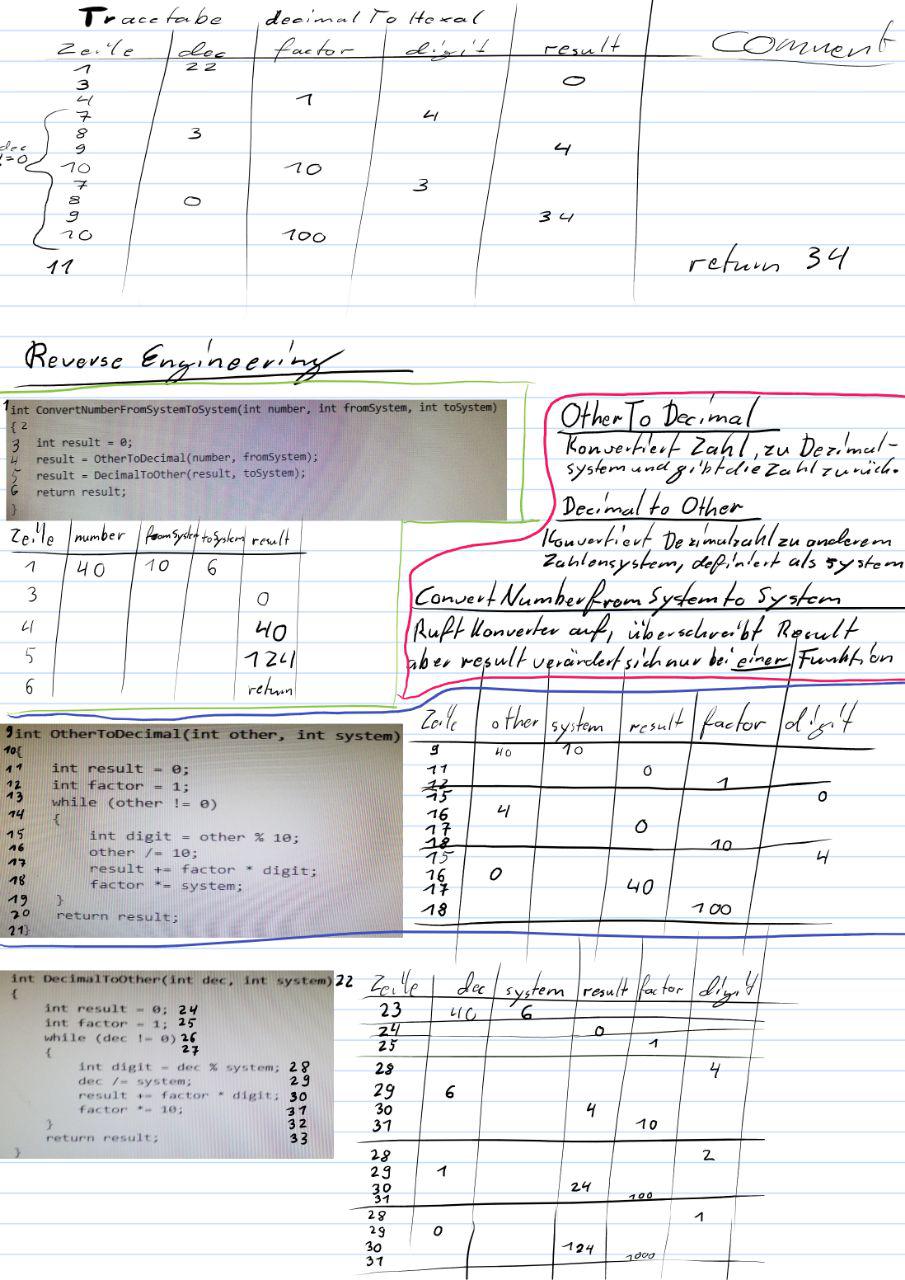 Tracetabe decimalToHexal
Zeile dec factor digit result Comment
1 22
3 0
4 1
7 4
8 3
dec
!=0
9 4
10 10
7 3
8 0
9 34
10 100
11 return 34
Reverse Engineering
1 int ConvertNumberFromSystemToSystem(int number, int fromSystem, int toSystem)
{ 2
3 int result = 0;
4 result = OtherToDecimal(number, fromSystem);
5 result = DecimalToOther(result, toSystem);
6 return result;
}
Zeile number fromSystem toSystem result
1 40 10 6
3 0
4 40
5 124
6 return
OtherTo Decimal
Konvertiert Zahl, zu Dezimal-
system und gibt die Zahl zurück.
Decimal to Other
Konvertiert Dezimalzahl zu anderem
Zahlensystem, definiert als system
Convert Number from System to System
Ruft Konverter auf, überschreibt Result
aber result verärdert sich nur bei einer Funktion
9 int OtherToDecimal(int other, int system)
10{
11 int result = 0;
12 int factor = 1;
13 while (other != 0)
14 {
15 int digit = other % 10;
16 other /= 10;
17 result += factor * digit;
18 factor *= system;
19 }
20 return result;
21}
Zeile other system result factor digit
9 40 10
11 0
12 1
15 0
16 4
17 0
18 10
15 4
16 0
17 40
18 100
int DecimalToOther(int dec, int system) 22
{
int result = 0; 24
int factor = 1; 25
while (dec != 0) 26
{ 27
int digit = dec % system; 28
dec /= system; 29
result += factor * digit; 30
factor *= 10; 31
} 32
return result; 33
}
Zeile dec system result factor digit
23 40 6
24 0
25 1
28 4
29 6
30 4
31 10
28 2
29 1
30 24
31 100
28 1
29 0
30 124
31 1000